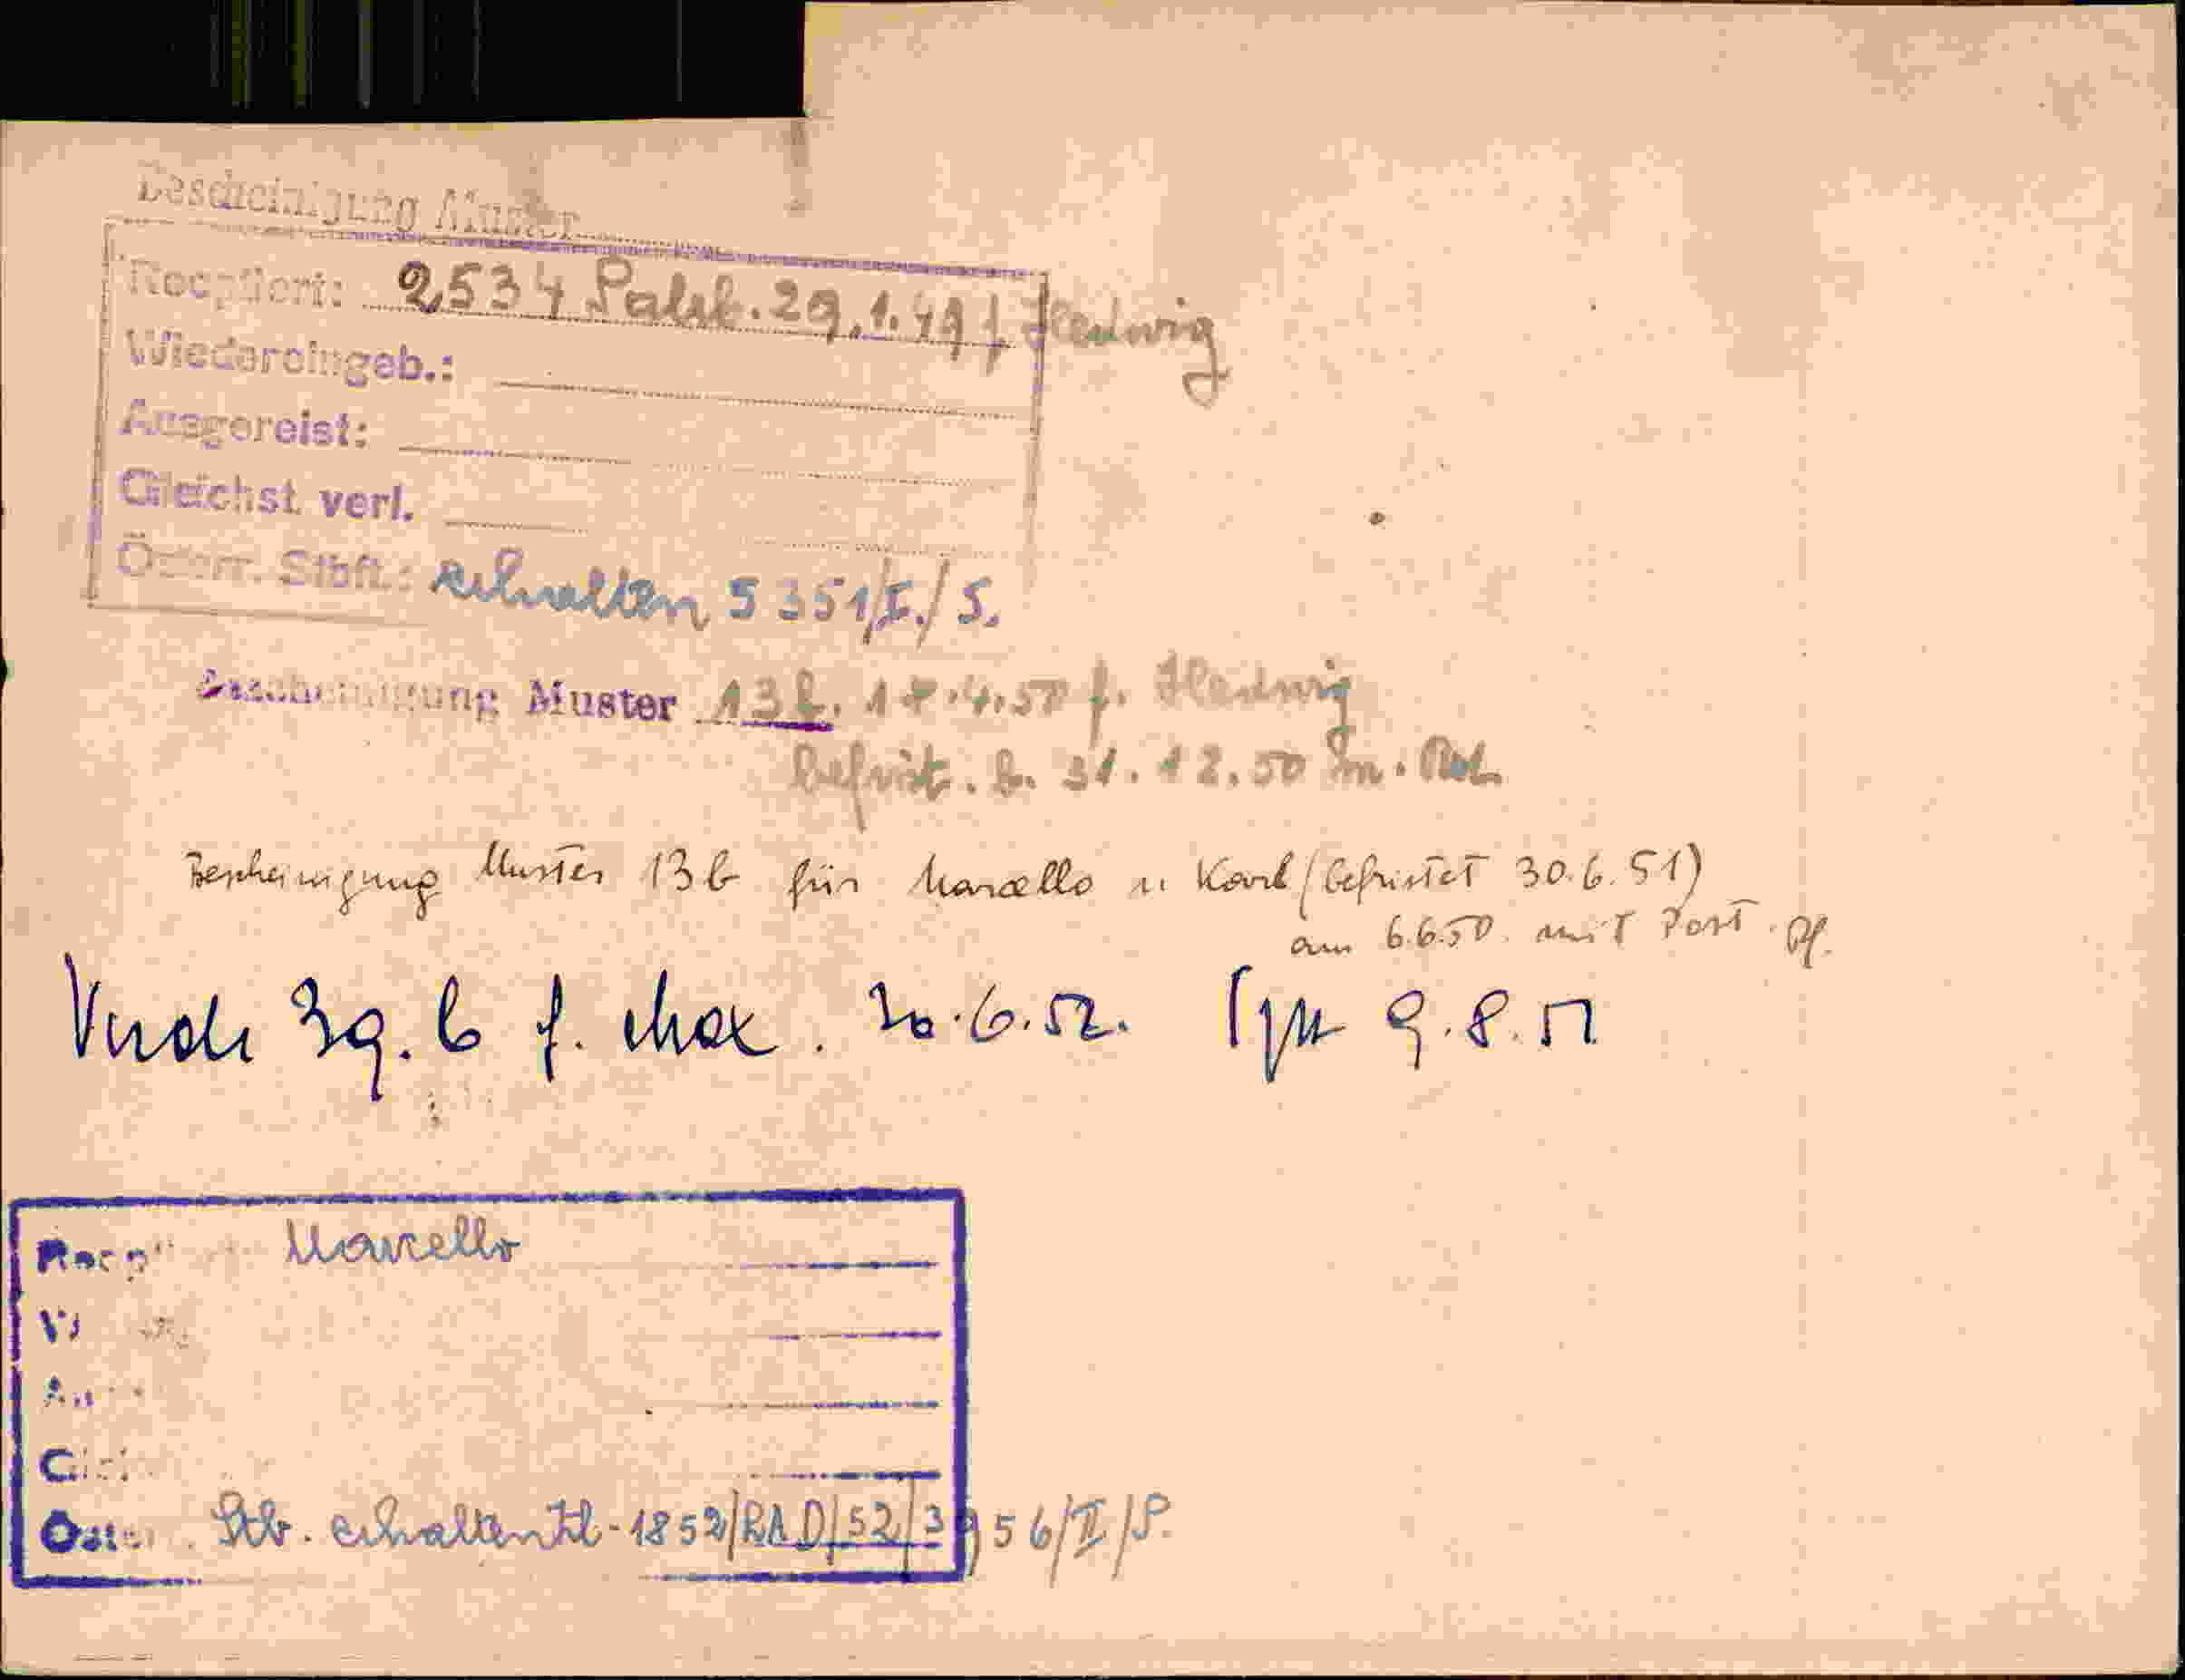 Bescheinigung Muster
Reoptiert: 2534 Salzb. 29.1.49 f. Hedwig
Wiedereingeb.:
Ausgereist:
Gleichst. verl.
Österr. Stbft.: erhalten 5351/I./S.
Bescheinigung Muster 13b. 4.50 f. Hedwig
befrist. b. 31.12.50
Bescheinigung Muster 13b für Marcello u Karl (befristet 30.6.51)
am 6.6.50 mit Post
b f. 30.6.52. 9.8.51
Reopt Marcello
Öster. Stb. erhalten Zl. 1852/RAD/52/3956/II/P.